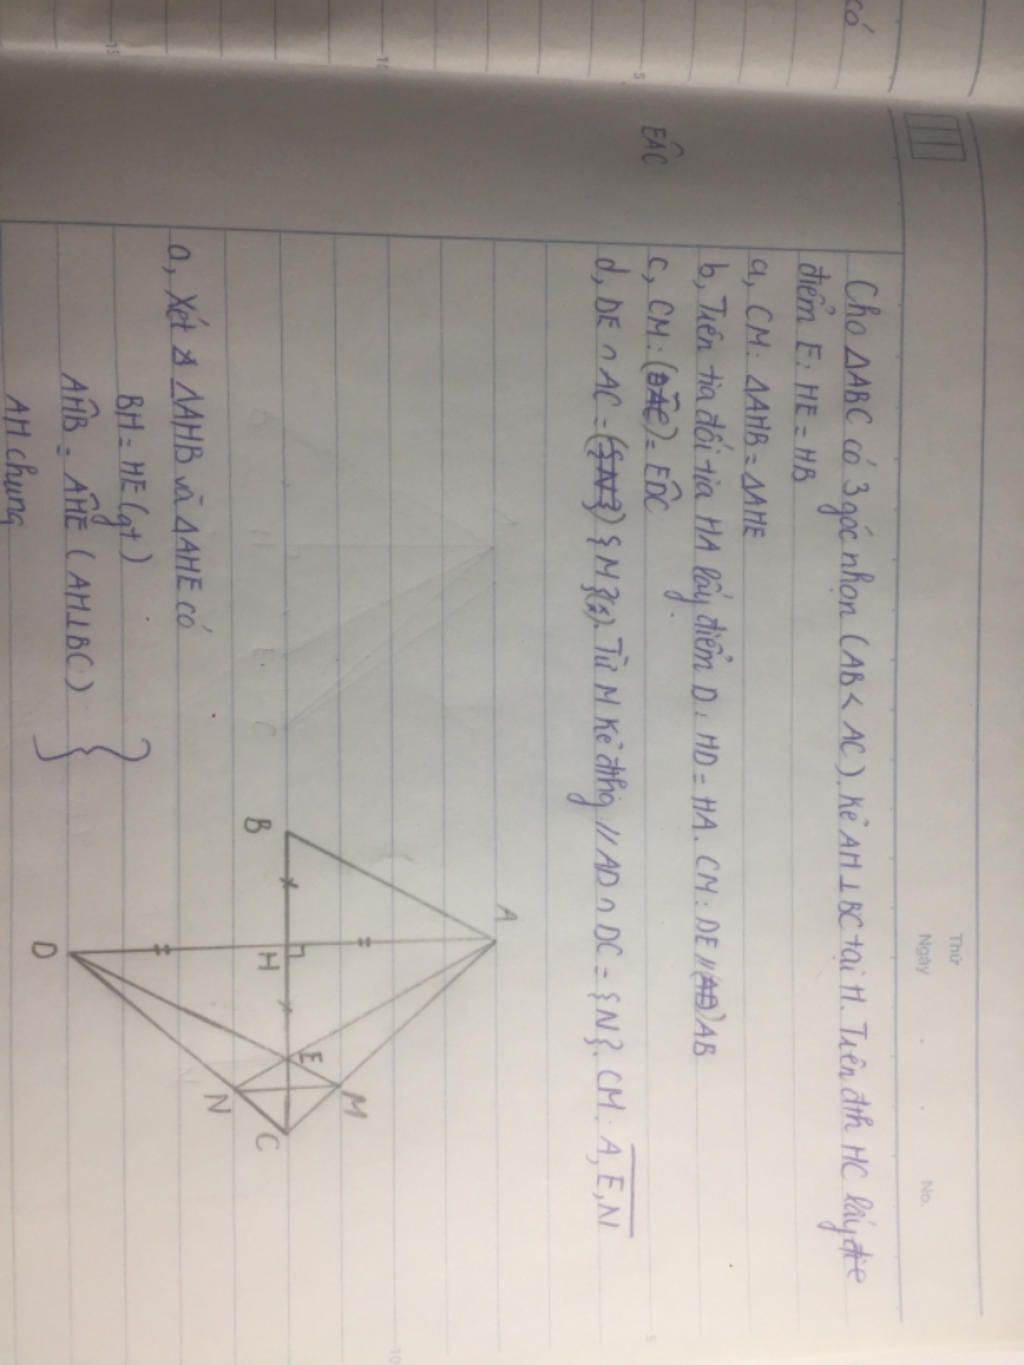 có
Thứ
Ngày
No.
Cho ΔABC có 3 góc nhọn (AB < AC). Kẻ AH ⊥ BC tại H. Trên đth HC lấy đie
điểm E: HE = HB
a, CM: ΔAHB = ΔAHE
b, Trên tia đối tia HA lấy điểm D: HD = HA. CM: DE // (AD) AB
EÂC
c, CM: (DÂC) = ED̂C
d, DE ∩ AC = ({N}) {M}. Từ M kẻ đthg // AD ∩ DC = {N}. CM: A, E, N
A
B
H
E
C
M
N
D
a, Xét Δ ΔAHB và ΔAHE có
BH = HE (gt)
AĤB = AĤE (AH ⊥ BC)
AH chung
5
10
15
5
10